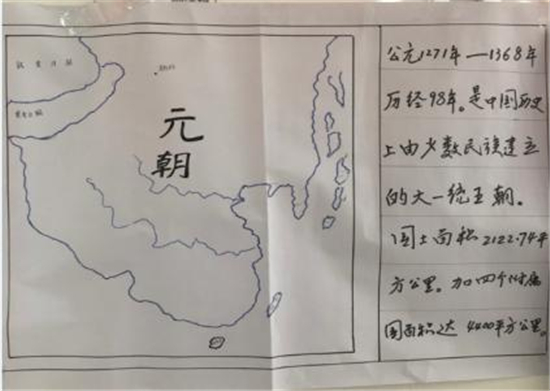 元
朝
公元1271年—1368年
历经98年。是中国历史
上由少数民族建立
的大一统王朝。
国土面积2122.74平
方公里。加四个附属
国面积达 4400平方公里。